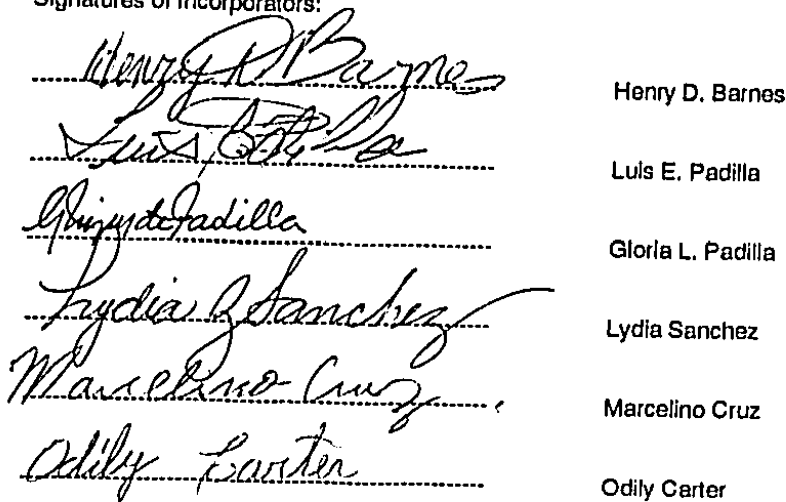 Signatures of Incorporators:
Henry D. Barnes Henry D. Barnes
Luis E. Padilla
Padilla Gloria L. Padilla
Lydia Sanchez Lydia Sanchez
Marcelino Cruz Marcelino Cruz
Odily Carter Odily Carter